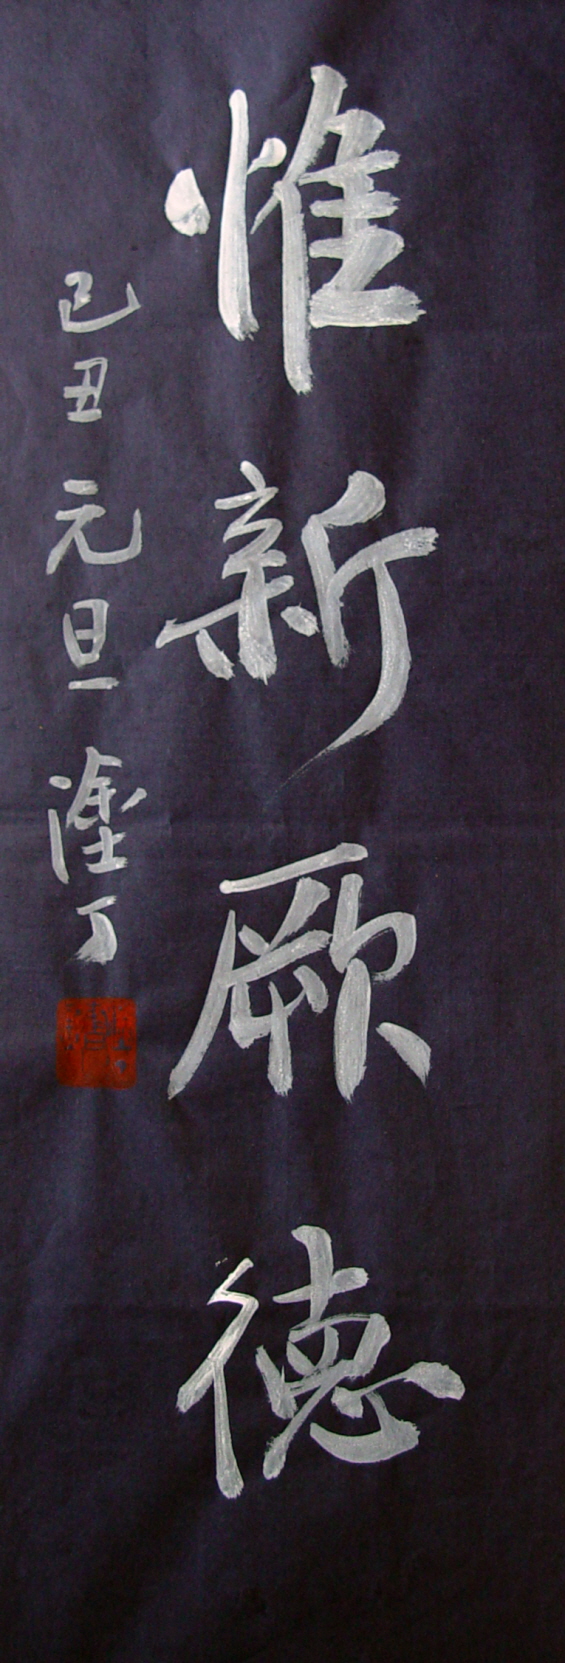 惟新厥德
己丑元旦 塗丁